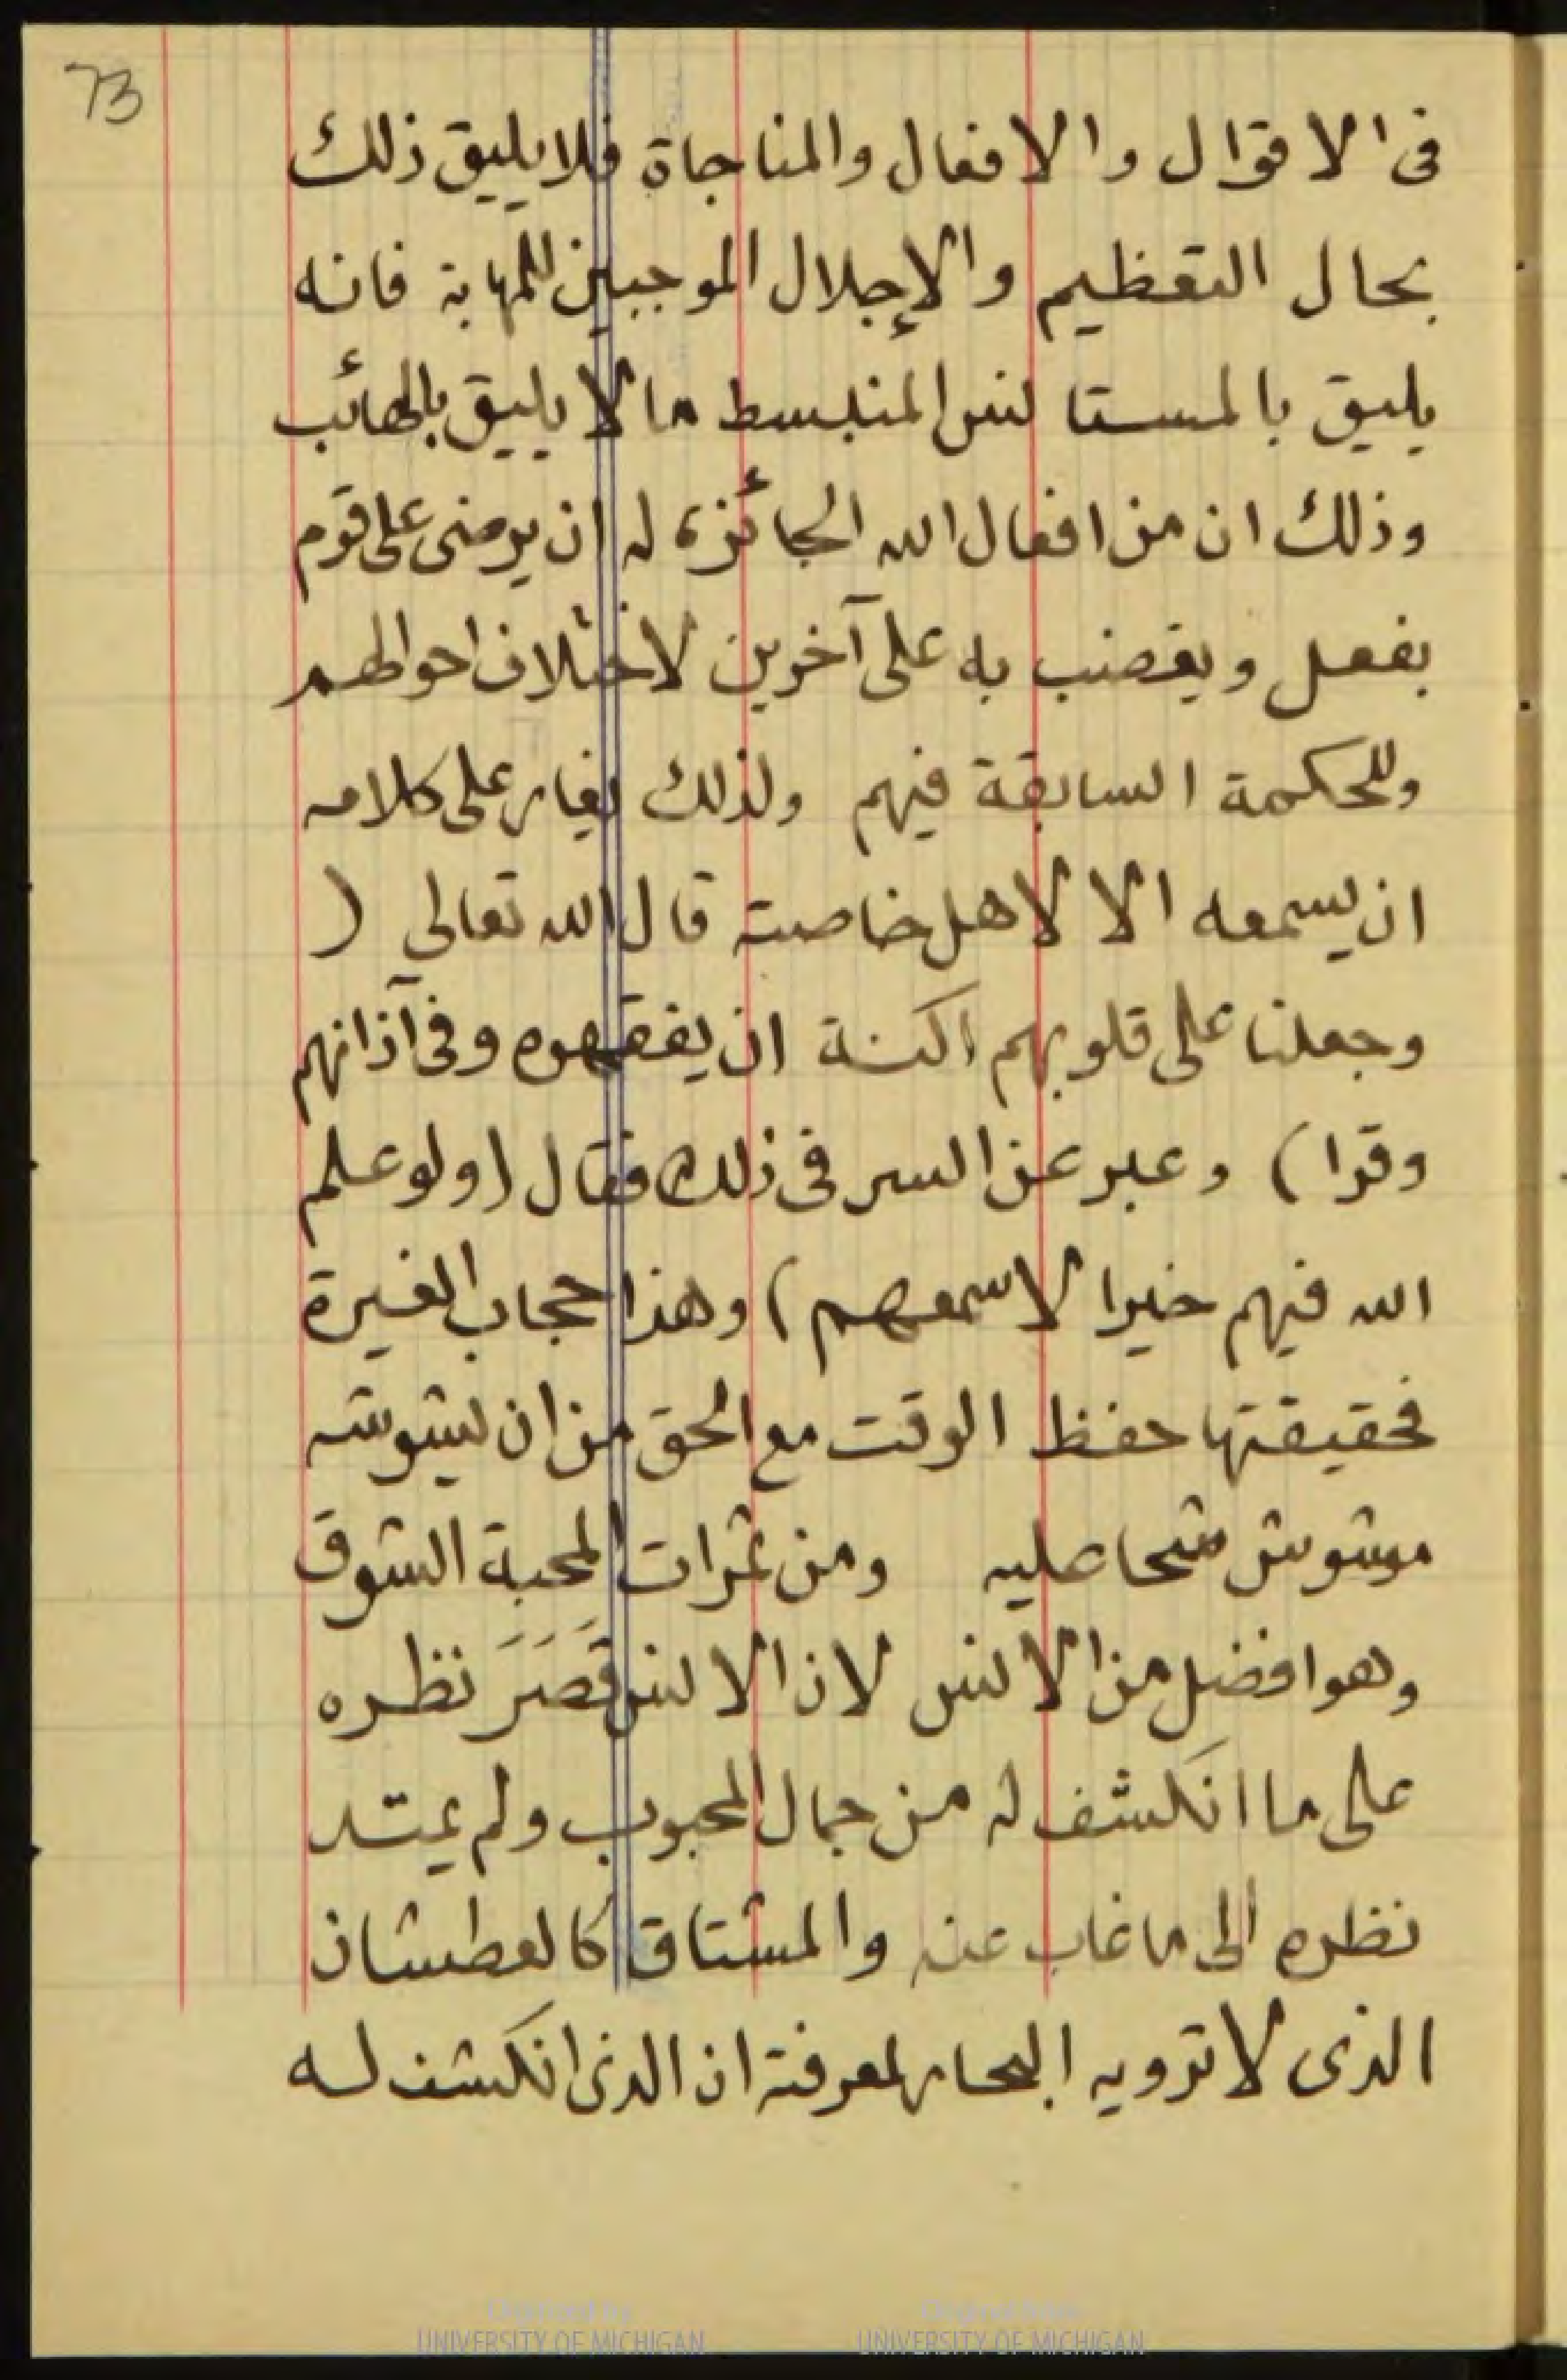 73
فى الاقوال والافعال والمناجاة فلا يليق ذلك
بحال التعظيم والإجلال الموجبين للمهابة فانه
يليق بالمستانس المنبسط ما لا يليق بالهائب
وذلك ان من افعال الله الجائزة له ان يرضى على قوم
بفعل ويغضب به على آخرين لاختلاف احوالهم
وللحكمة السابقة فيهم ولذلك يغار على كلامه
ان يسمعه الا لاهل خاصته قال الله تعالى (
وجعلنا على قلوبهم اكنة ان يفقهوه وفى آذانهم
وقرا) وعبر عن السر فى ذلك فقال (ولو علم
الله فيهم خيرا لاسمعهم) وهذا حجاب الغيرة
فحقيقتها حفظ الوقت مع الحق من ان يشوشه
مشوش شحا عليه ومن ثمرات المحبة الشوق
وهو افضل من الانس لان الانس قَصَرَ نظره
على ما انكشف له من جمال المحبوب ولم يمتد
نظره الى ما غاب عنه والمشتاق كالعطشان
الذى لا ترويه البحار لمعرفته ان الذى انكشف له
Digitized by
UNIVERSITY OF MICHIGAN
Original from
UNIVERSITY OF MICHIGAN